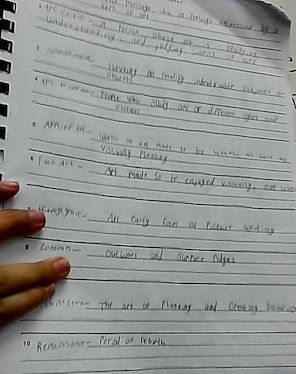 message, or
sort of art
Art Critic - A person whose job is studying
understanding, and judging works of art
Having no readily identifiable subjects or
objects
Art Historian - People who study art of different ages and
cultures
5 Applied art - Works of art made to be useful as well as
visually pleasing
6 Fine Art - Art made to be enjoyed visually, not
Hieroglyphic - An early form of picture writing
8 Contours - outlines and surface ridges
Architecture - The art of planning and creating buildings
10 Renaissance - Period of rebirth